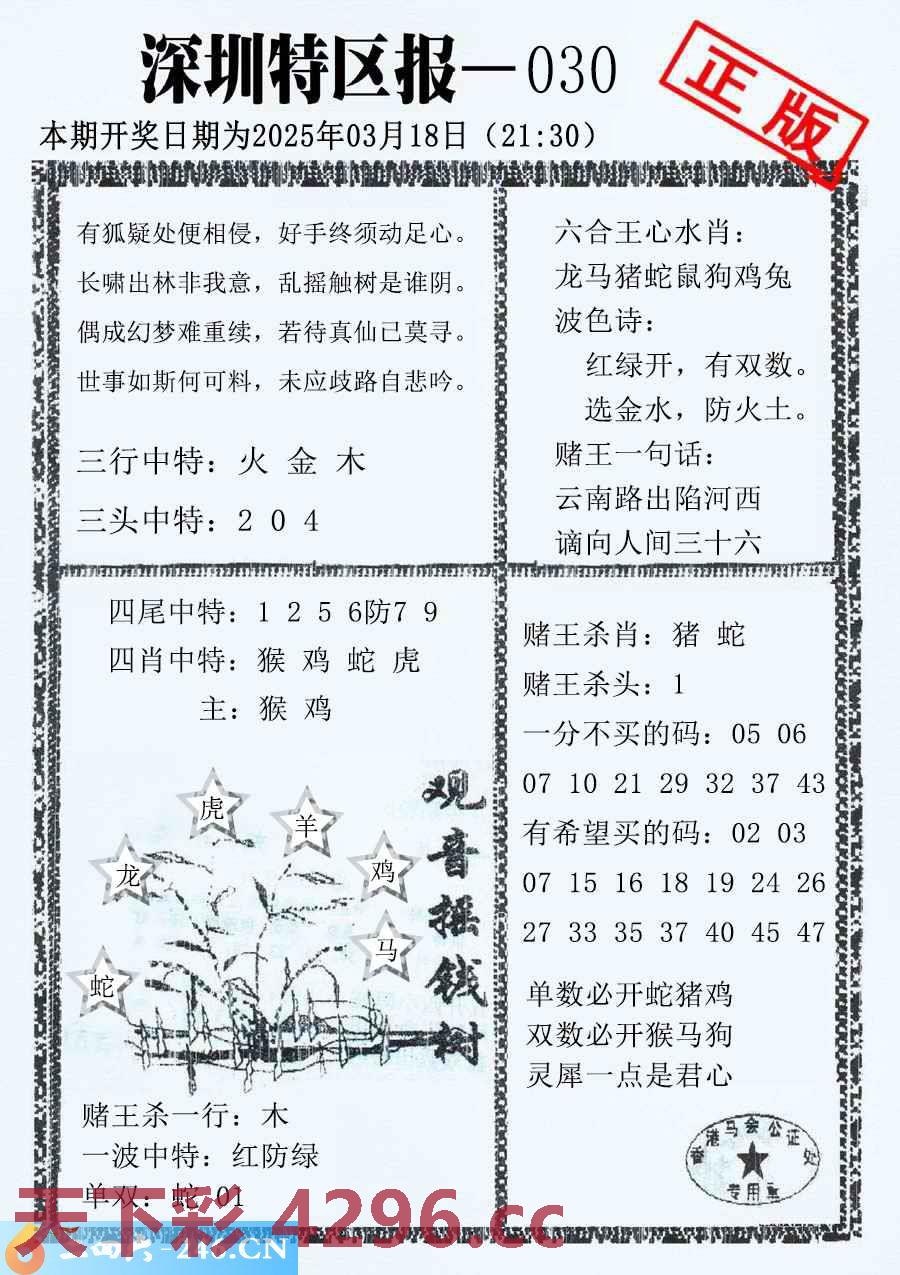 深圳特区报—030
正版
本期开奖日期为2025年03月18日（21:30）
有狐疑处便相侵，好手终须动足心。
长啸出林非我意，乱摇触树是谁阴。
偶成幻梦难重续，若待真仙已莫寻。
世事如斯何可料，未应歧路自悲吟。
三行中特：火 金 木
三头中特：2 0 4
六合王心水肖：
龙马猪蛇鼠狗鸡兔
波色诗：
红绿开，有双数。
选金水，防火土。
赌王一句话：
云南路出陷河西
谪向人间三十六
四尾中特：1 2 5 6防7 9
四肖中特：猴 鸡 蛇 虎
主：猴 鸡
虎
羊
龙
鸡
马
蛇
观音摇钱树
赌王杀一行：木
一波中特：红防绿
单双：蛇 01
赌王杀肖：猪 蛇
赌王杀头：1
一分不买的码：05 06
07 10 21 29 32 37 43
有希望买的码：02 03
07 15 16 18 19 24 26
27 33 35 37 40 45 47
单数必开蛇猪鸡
双数必开猴马狗
灵犀一点是君心
香港马会公证处
专用章
天下彩 4296.cc
-246.CN